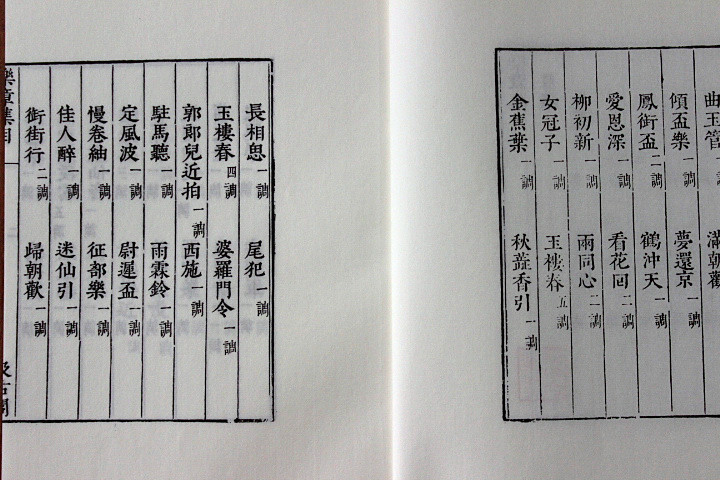 曲玉管 滿朝歡
傾盃樂 一調 夢還京 一調
鳳銜盃 二調 鶴沖天 一調
愛恩深 一調 看花回 二調
柳初新 一調 兩同心 二調
女冠子 一調 玉樓春 五調
金蕉葉 一調 秋蘂香引 一調
長相思 一調 尾犯 一調
玉樓春 四調 婆羅門令 一調
郭郎兒近拍 一調 西施 一調
駐馬聽 一調 雨霖鈴 一調
定風波 一調 尉遲盃 一調
慢卷紬 一調 征部樂 一調
佳人醉 一調 迷仙引 一調
御街行 二調 歸朝歡 一調
樂章集目 汲古閣